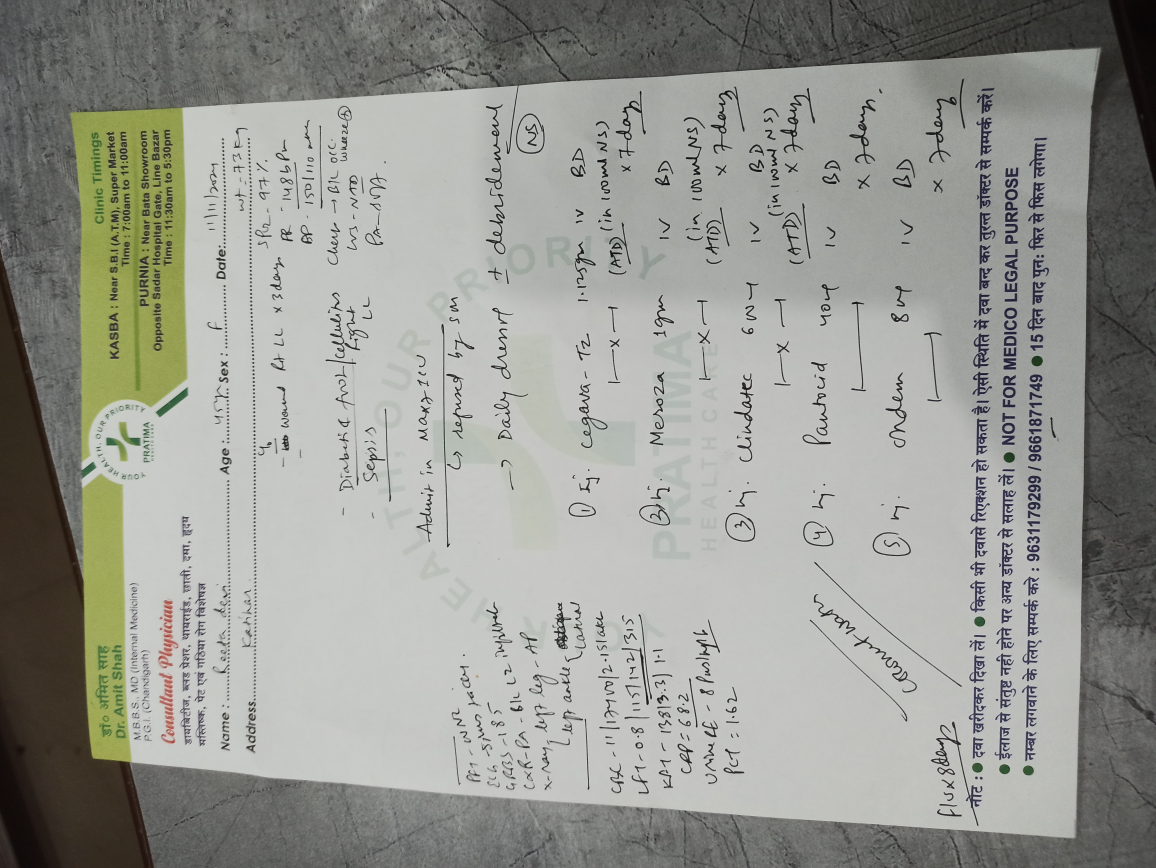 डॉ० अमित साह
Dr. Amit Shah
M.B.B.S., MD (Internal Medicine)
P.G.I. (Chandigarh)
Consultant Physician
डायबिटीज, ब्लड प्रेशर, थायराईड, छाती, दमा, हृदय
मस्तिष्क, पेट एवं गठिया रोग विशेषज्ञ
YOUR HEALTH, OUR PRIORITY
PRATIMA
HEALTHCARE
Clinic Timings
KASBA : Near S.B.I (A.T.M), Super Market
Time : 7:00am to 11:00am
PURNIA : Near Bata Showroom
Opposite Sadar Hospital Gate, Line Bazar
Time : 11:30am to 5:30pm
Name : Reeta devi Age : 45yr Sex : F Date: 11/11/2024
Address. Katihar wt = 73 kg
Wound Rt LL x 3 days
SPO2 - 97%
PR - 148 bpm
BP - 150/110 mm
Chest → B/L occ. wheeze
CVS - NAD
PA -
- Diabetic foot / cellulitis Right LL
- Sepsis
Admit in Max ICU
↳ refused by
→ Daily dressing ± debridement
NS
PFT - WNL
ECG - Sinus
GRBS - 185
CXR - PA - B/L LZ infiltrate
X-ray left leg - AP
left ankle lateral
CBC - 11/17400/2.15 lakh
LFT - 0.8/115/142/315
KFT - 138/3.3/1.1
CRP = 68.2
Urine RE - 8 pus/hpf
PCT = 1.62
① Inj. Cegava - TZ 1.125gm IV BD
1 - x - 1 (ATD) (in 100ml NS) x 7 days
② Inj. Meroza 1gm IV BD
1 - x - 1 (ATD) (in 100ml NS) x 7 days
③ Inj. Clindatec 600 IV BD
1 - x - 1 (ATD) (in 100ml NS) x 7 days
④ Inj. Pantocid 40mg IV BD
x 7 days.
⑤ Inj. Ondem 8mg IV BD
x 7 days
F/U x 8 days
नोट : ● दवा खरीदकर दिखा लें। ● किसी भी दवासे रिएक्शन हो सकता है। ऐसी स्थिति में दवा बन्द कर तुरन्त डॉक्टर से सम्पर्क करें।
● ईलाज से संतुष्ट नही होने पर अन्य डॉक्टर से सलाह लें। ● NOT FOR MEDICO LEGAL PURPOSE
● नम्बर लगवाने के लिए सम्पर्क करे : 9631179299 / 9661871749 ● 15 दिन बाद पुन: फिर से फिस लगेगा।